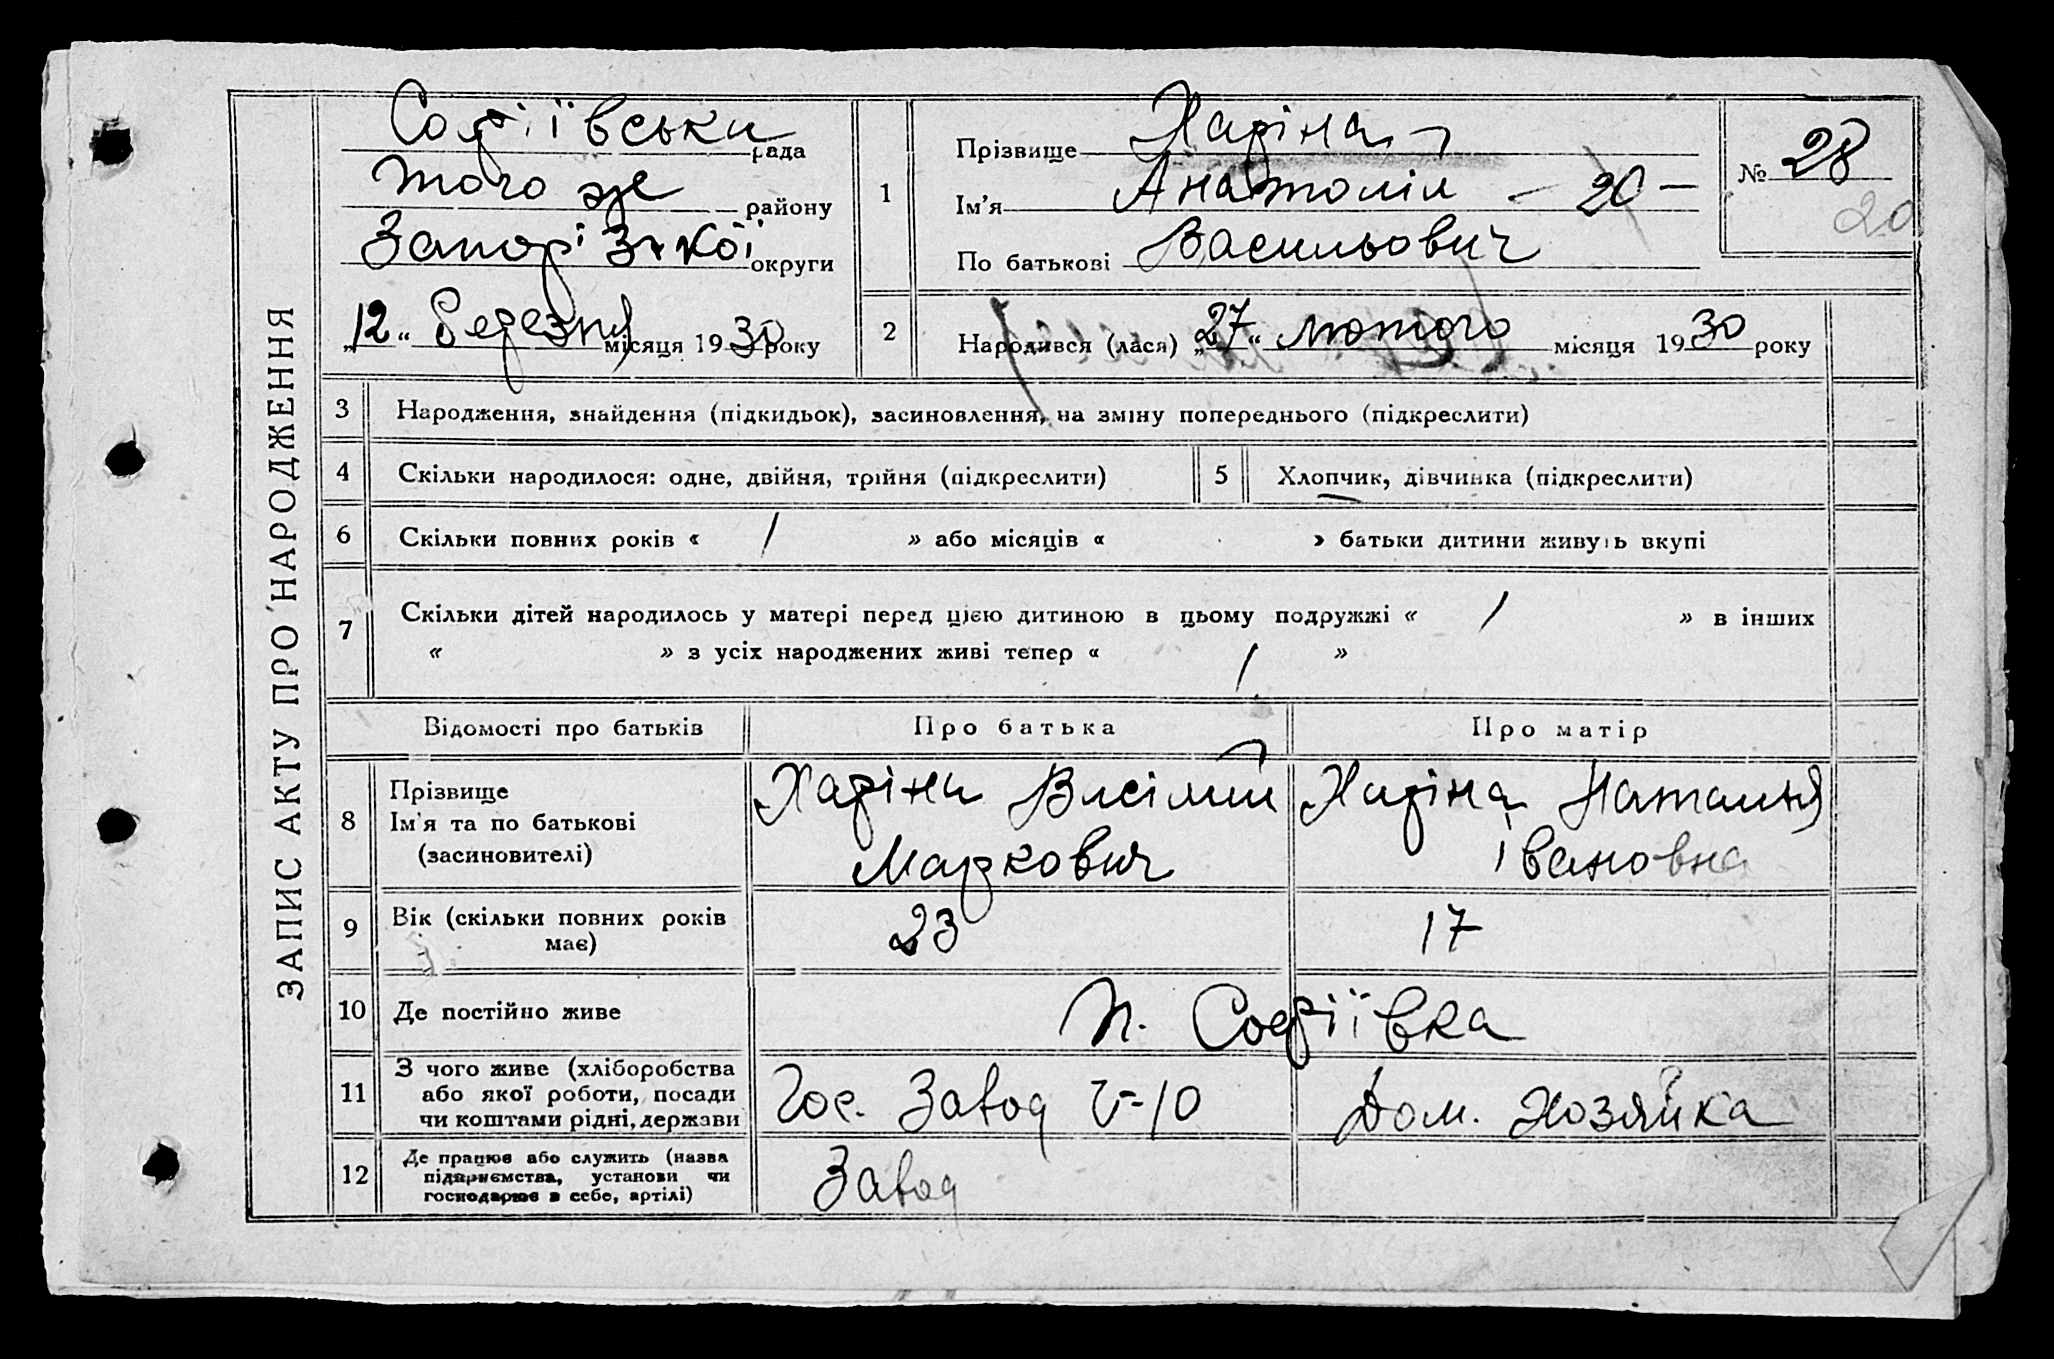 ЗАПИС АКТУ ПРО НАРОДЖЕННЯ
Софіївська рада
того же району
Запорізької округи
„12“ березня місяця 1930 року
1
Прізвище Харіна
Ім'я Анатолій - 20 -
По батькові Васильович
№ 28
20
2
Народився (лася) „27“ лютого місяця 1930 року
3 Народження, знайдення (підкидьок), засиновлення, на зміну попереднього (підкреслити)
4 Скільки народилося: одне, двійня, трійня (підкреслити)
5 Хлопчик, дівчинка (підкреслити)
6 Скільки повних років « / » або місяців « » батьки дитини живуть вкупі
7 Скільки дітей народилось у матері перед цією дитиною в цьому подружжі « / » в інших
« » з усіх народжених живі тепер « / »
Відомості про батьків Про батька Про матір
8 Прізвище
Ім'я та по батькові
(засиновителі)
Харіна Васілий
Маркович
Харіна Наталья
Івановна
9 Вік (скільки повних років
має)
23 17
10 Де постійно живе п. Софіївка
11 З чого живе (хліборобства
або якої роботи, посади
чи коштами рідні, держави
Гос. Завод Дом. Хозяйка
12 Де працює або служить (назва
підприємства, установи чи
господарює в себе, артілі)
Завод